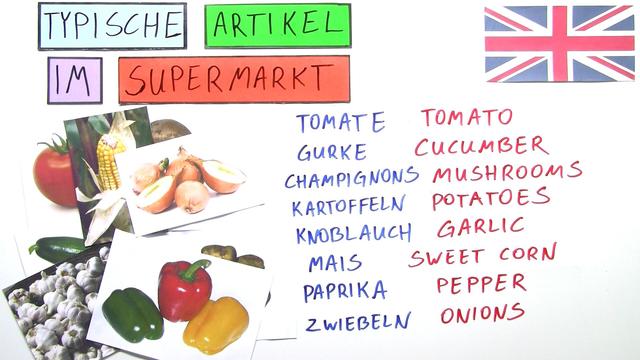 TYPISCHE ARTIKEL
IM SUPERMARKT
TOMATE TOMATO
GURKE CUCUMBER
CHAMPIGNONS MUSHROOMS
KARTOFFELN POTATOES
KNOBLAUCH GARLIC
MAIS SWEET CORN
PAPRIKA PEPPER
ZWIEBELN ONIONS